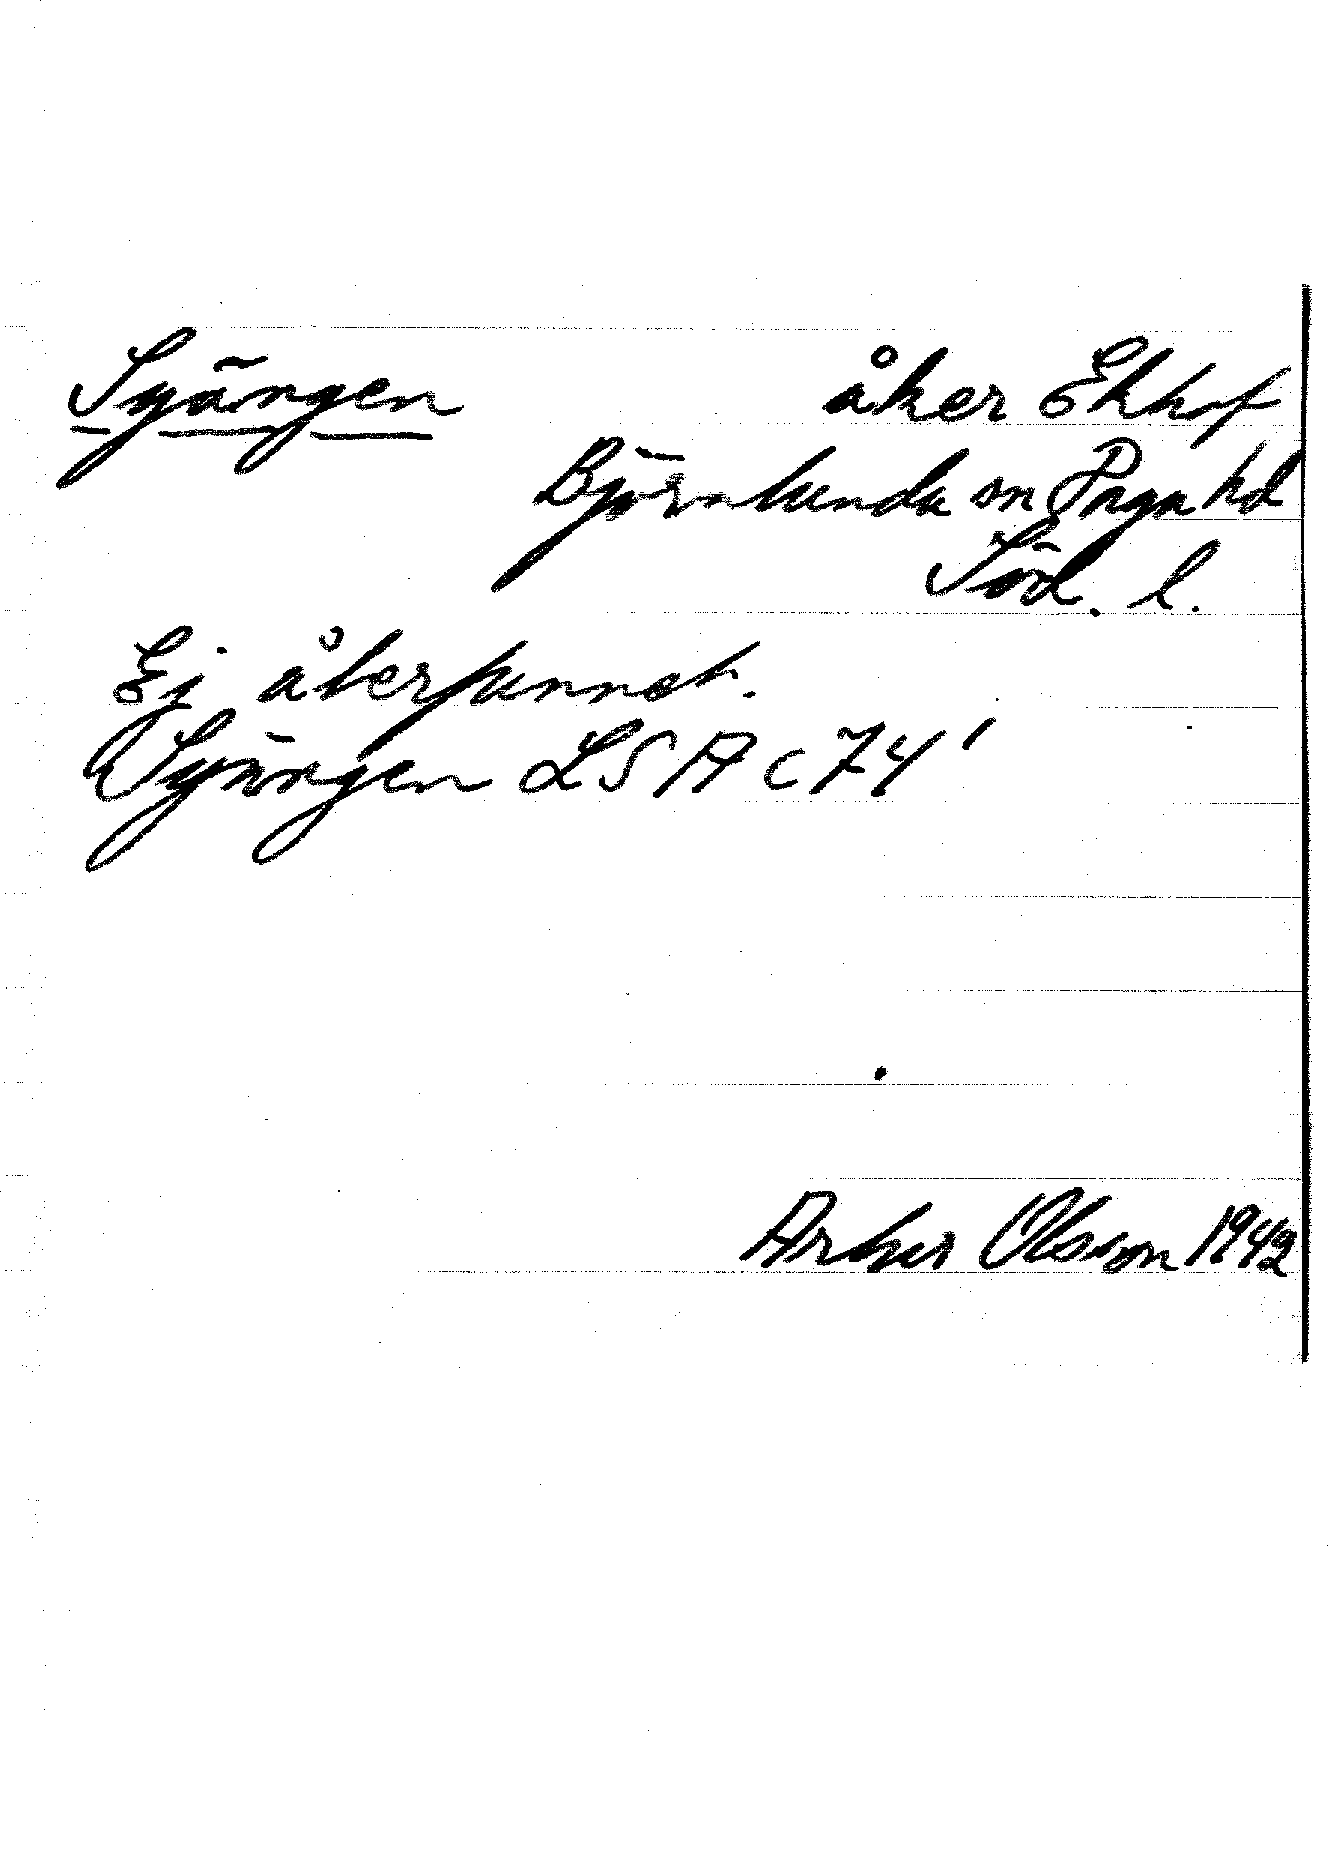 Syängen åker Ekhof
Björnlunda sn Daga hd
Söd. l.
Ej återfunnet.
Syängen LSA C 74¹
Arthur Olsson 1942